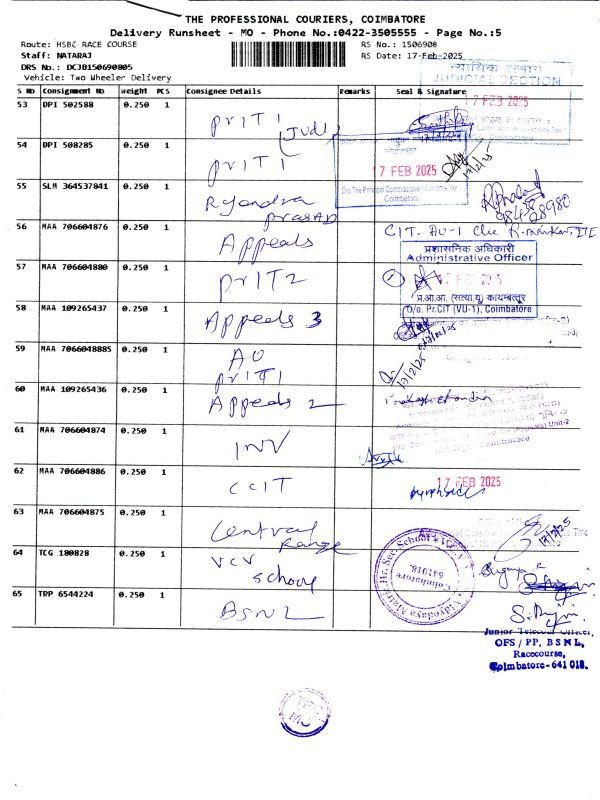 THE PROFESSIONAL COURIERS, COIMBATORE
Delivery Runsheet - MO - Phone No.:0422-3505555 - Page No.:5
Route: HSBC RACE COURSE RS No.: 1506908
Staff: NATARAJ RS Date: 17-Feb-2025
DRS No.: DCJB150690805
Vehicle: Two Wheeler Delivery
न्यायिक अनुभाग
JUDICIAL SECTION
S No Consignment No Weight PCS Consignee Details Remarks Seal & Signature
53 DPI 502588 0.250 1 PrIT 1 Judl
17 FEB 2025
54 DPI 508285 0.250 1 PrIT 1
17 FEB 2025
17/2/25
O/o The Principal Commissioner of Income Tax
Coimbatore
55 SLM 364537841 0.250 1 Rajendra
prasad
56 MAA 706604876 0.250 1 Appeals
CIT. AU-1
प्रशासनिक अधिकारी
Administrative Officer
57 MAA 706604880 0.250 1 PrIT 2
प्र.आ.आ. (सत्या.यू) कायम्बत्तूर
O/o. Pr.CIT (VU-1), Coimbatore
58 MAA 109265437 0.250 1 Appeals 3
59 MAA 7066048885 0.250 1 AO
PrIT 1
17/2/25
60 MAA 109265436 0.250 1 Appeals 2
Unit-2
Coimbatore
61 MAA 706604874 0.250 1 INV
62 MAA 706604886 0.250 1 CCIT
17 FEB 2025
63 MAA 706604875 0.250 1 Central
Range
17/2/25
64 TCG 180828 0.250 1 VCV
School
Hr. Sec. School
Coimbatore
641018.
65 TRP 6544224 0.250 1 BSNL
Junior Telecom Officer,
OFS / PP, B S N L,
Racecourse,
Coimbatore - 641 018.
TPC
MO